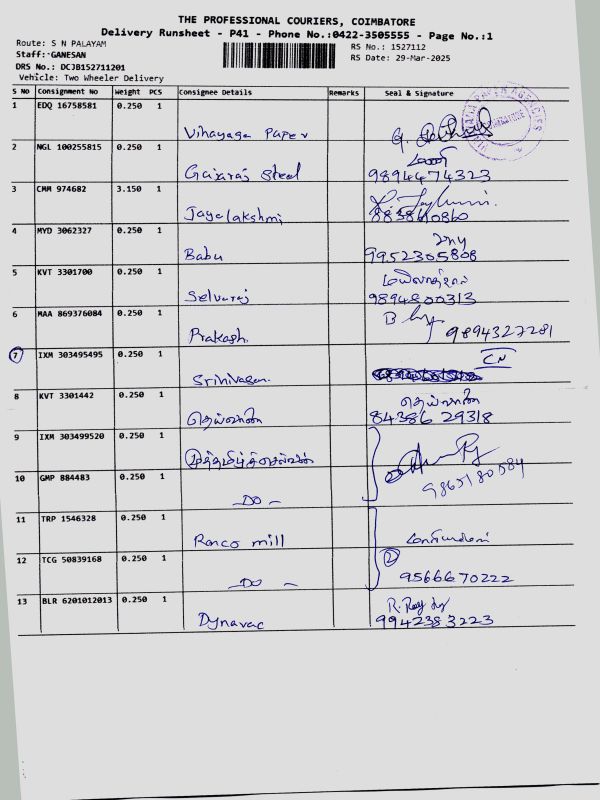 THE PROFESSIONAL COURIERS, COIMBATORE
Delivery Runsheet - P41 - Phone No.:0422-3505555 - Page No.:1
Route: S N PALAYAM
RS No.: 1527112
Staff: GANESAN
RS Date: 29-Mar-2025
DRS No.: DCJB152711201
Vehicle: Two Wheeler Delivery
S No Consignment No Weight PCS Consignee Details Remarks Seal & Signature
1 EDQ 16758581 0.250 1
Vinayaga Paper
2 NGL 100255815 0.250 1
Gajaraj Steel 9894474323
3 CMM 974682 3.150 1
Jayalakshmi
4 MYD 3062327 0.250 1
Babu 9952305808
5 KVT 3301700 0.250 1
Selvaraj 9894800313
6 MAA 869376084 0.250 1
Prakash 9894327281
7 IXM 303495495 0.250 1 CN
Srinivasan
8 KVT 3301442 0.250 1
தெய்வானை 84386 29318
9 IXM 303499520 0.250 1
முத்தமிழ்ச்செல்வன்
10 GMP 884483 0.250 1
- DO - 9865180584
11 TRP 1546328 0.250 1
Ranco mill
12 TCG 50839168 0.250 1 2
- DO - 9566670222
13 BLR 6201012013 0.250 1
Dynavac 9942383223